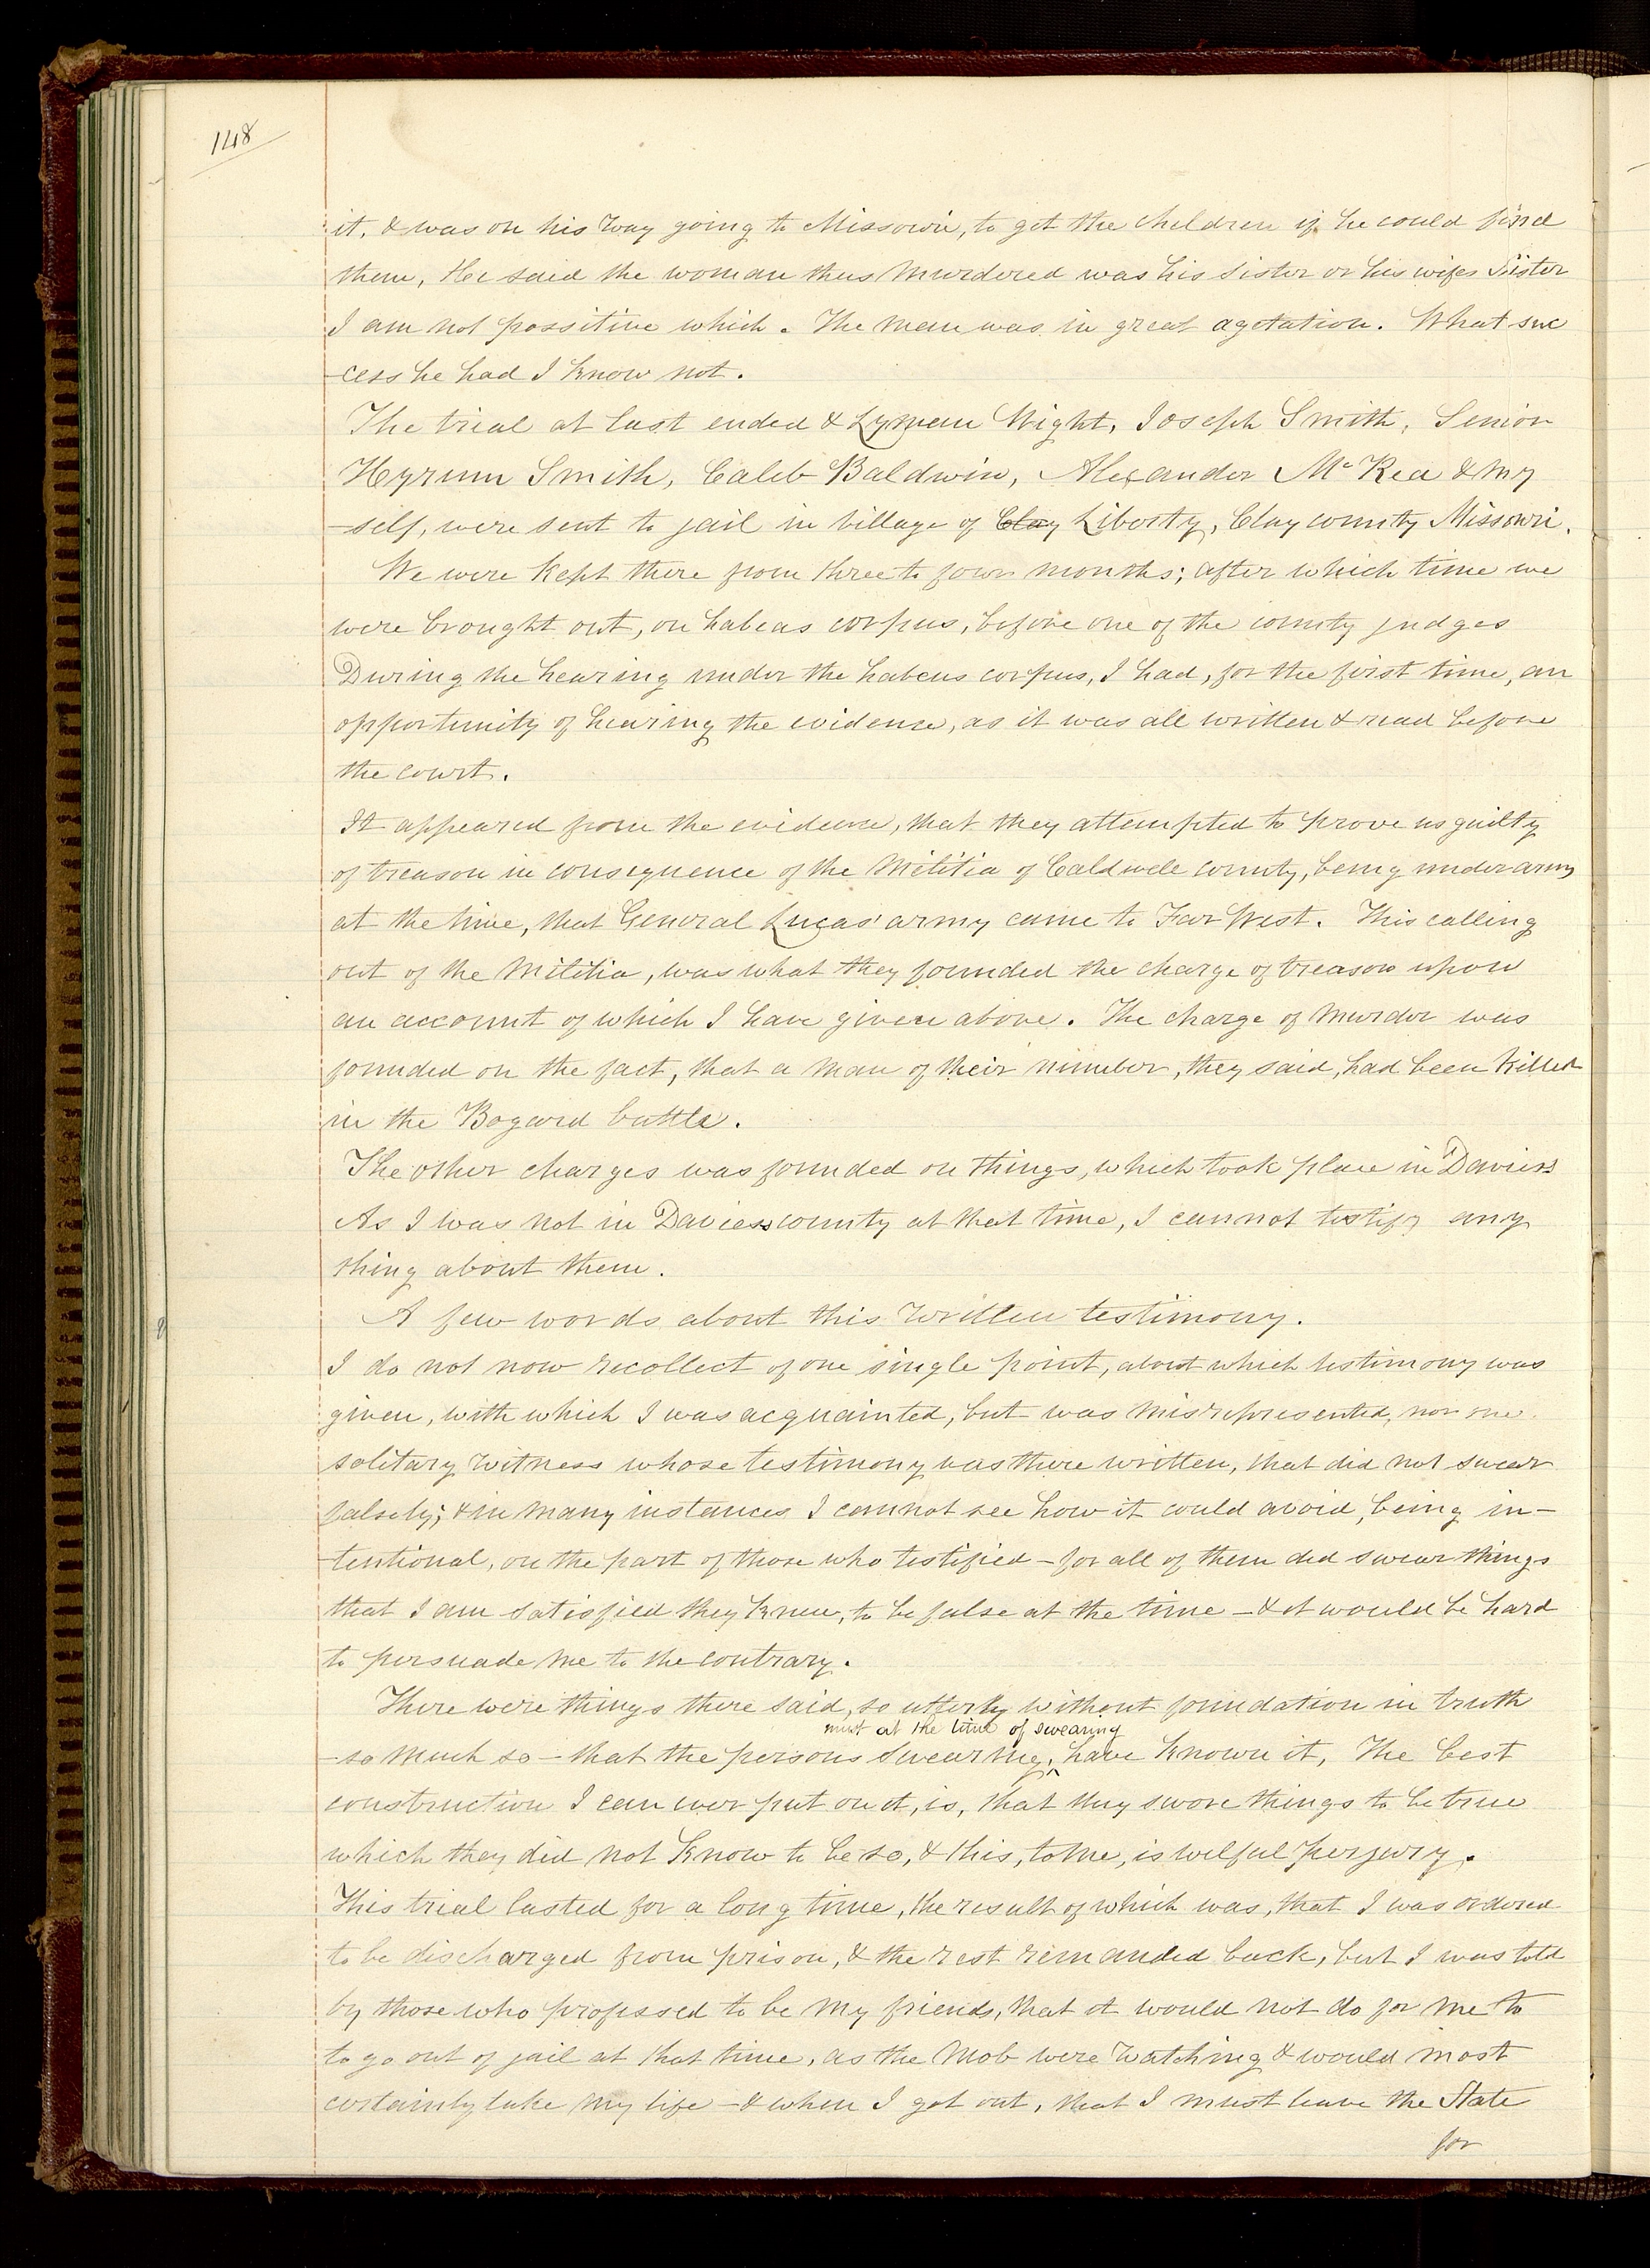 148
it. & was on his way going to Missouri, to get the children if he could find
them, He said the woman thus murdered was his sister or his wifes Sister
I am not possitive which. The man was in great agetation. What suc
-cess he had I know not.
The trial at last ended & Lyman Wight, Joseph Smith, Senior
Hyrum Smith, Caleb Baldwin, Alexander McRea & my
-self, were sent to jail in village of Clay Liberty, Clay county Missouri.
We were kept there from three to four months; after which time we
were brought out, on habeas corpus, before one of the county judges
During the hearing under the habeus corpus, I had, for the first time, an
opportunity of hearing the evidence, as it was all written & read before
the court.
It appeared from the evidence, that they attempted to prove us guilty
of treason in consequence of the Militia of Caldwell county, being under arms
at the time, that General Lucas' army came to Far West. This calling
out of the Militia, was what they founded the charge of treason upon
an account of which I have given above. The charge of murder was
founded on the fact, that a man of their number, they said, had been killed
in the Bogard battle.
The other charges was founded on things, which took place in Daviess
As I was not in Daviess county at that time, I cannot testify any
thing about them.
A few words about this written testimony.
I do not now recollect of one single point, about which testimony was
given, with which I was acquainted, but was misrepresented, nor one
solitary witness whose testimony was there written, that did not swear
falsely; & in many instances I cannot see how it could avoid, being in-
-tentional, on the part of those who testified - for all of them did swear things
that I am satisfied they knew, to be false at the time - & it would be hard
to persuade me to the contrary.
There were things there said, so utterly without foundation in truth
must at the time of swearing
-so much so - that the persons swearing, ^ have known it, The best
construction I can ever put on it, is, that they swore things to be true
which they did not know to be so, & this, to me, is wilful perjury.
This trial lasted for a long time, the result of which was, that I was ordered
to be discharged from prison, & the rest remanded back, but I was told
by those who professed to be my friends, that it would not do for me to
to go out of jail at that time, as the Mob were watching & would most
certainly take my life - & when I got out, that I must leave the State
for